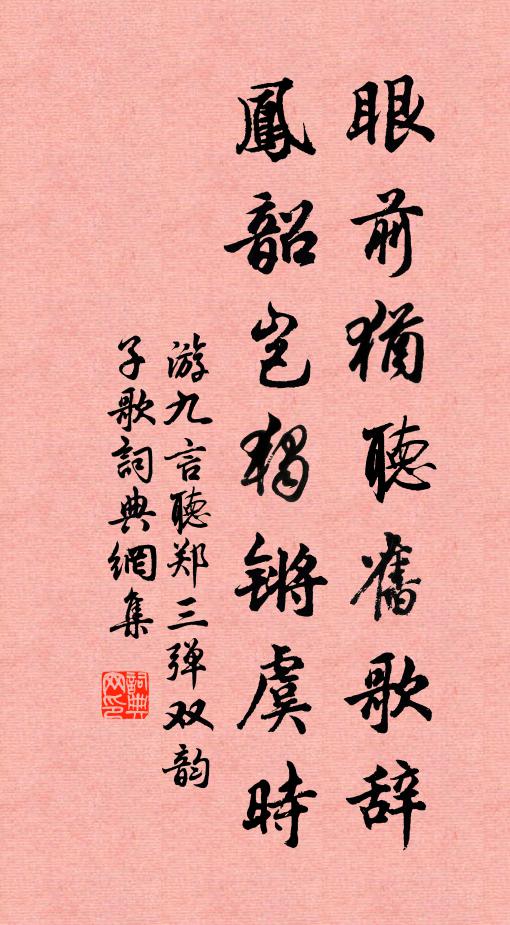 眼前猶聽舊歌辞
鳳韶岂獨锵虞時
游九言聽郑三弹双韵
子歌詞典網集
詞典网印